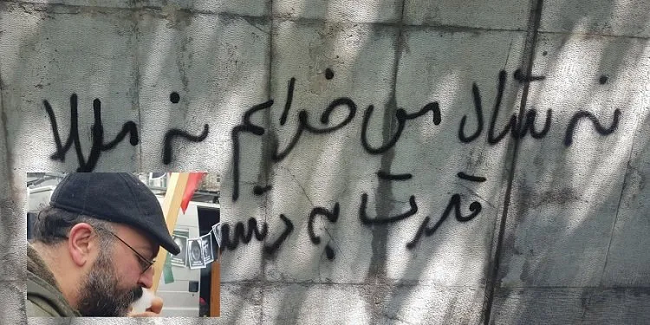 نه شاه می خوایم نه ملا
قدرت به